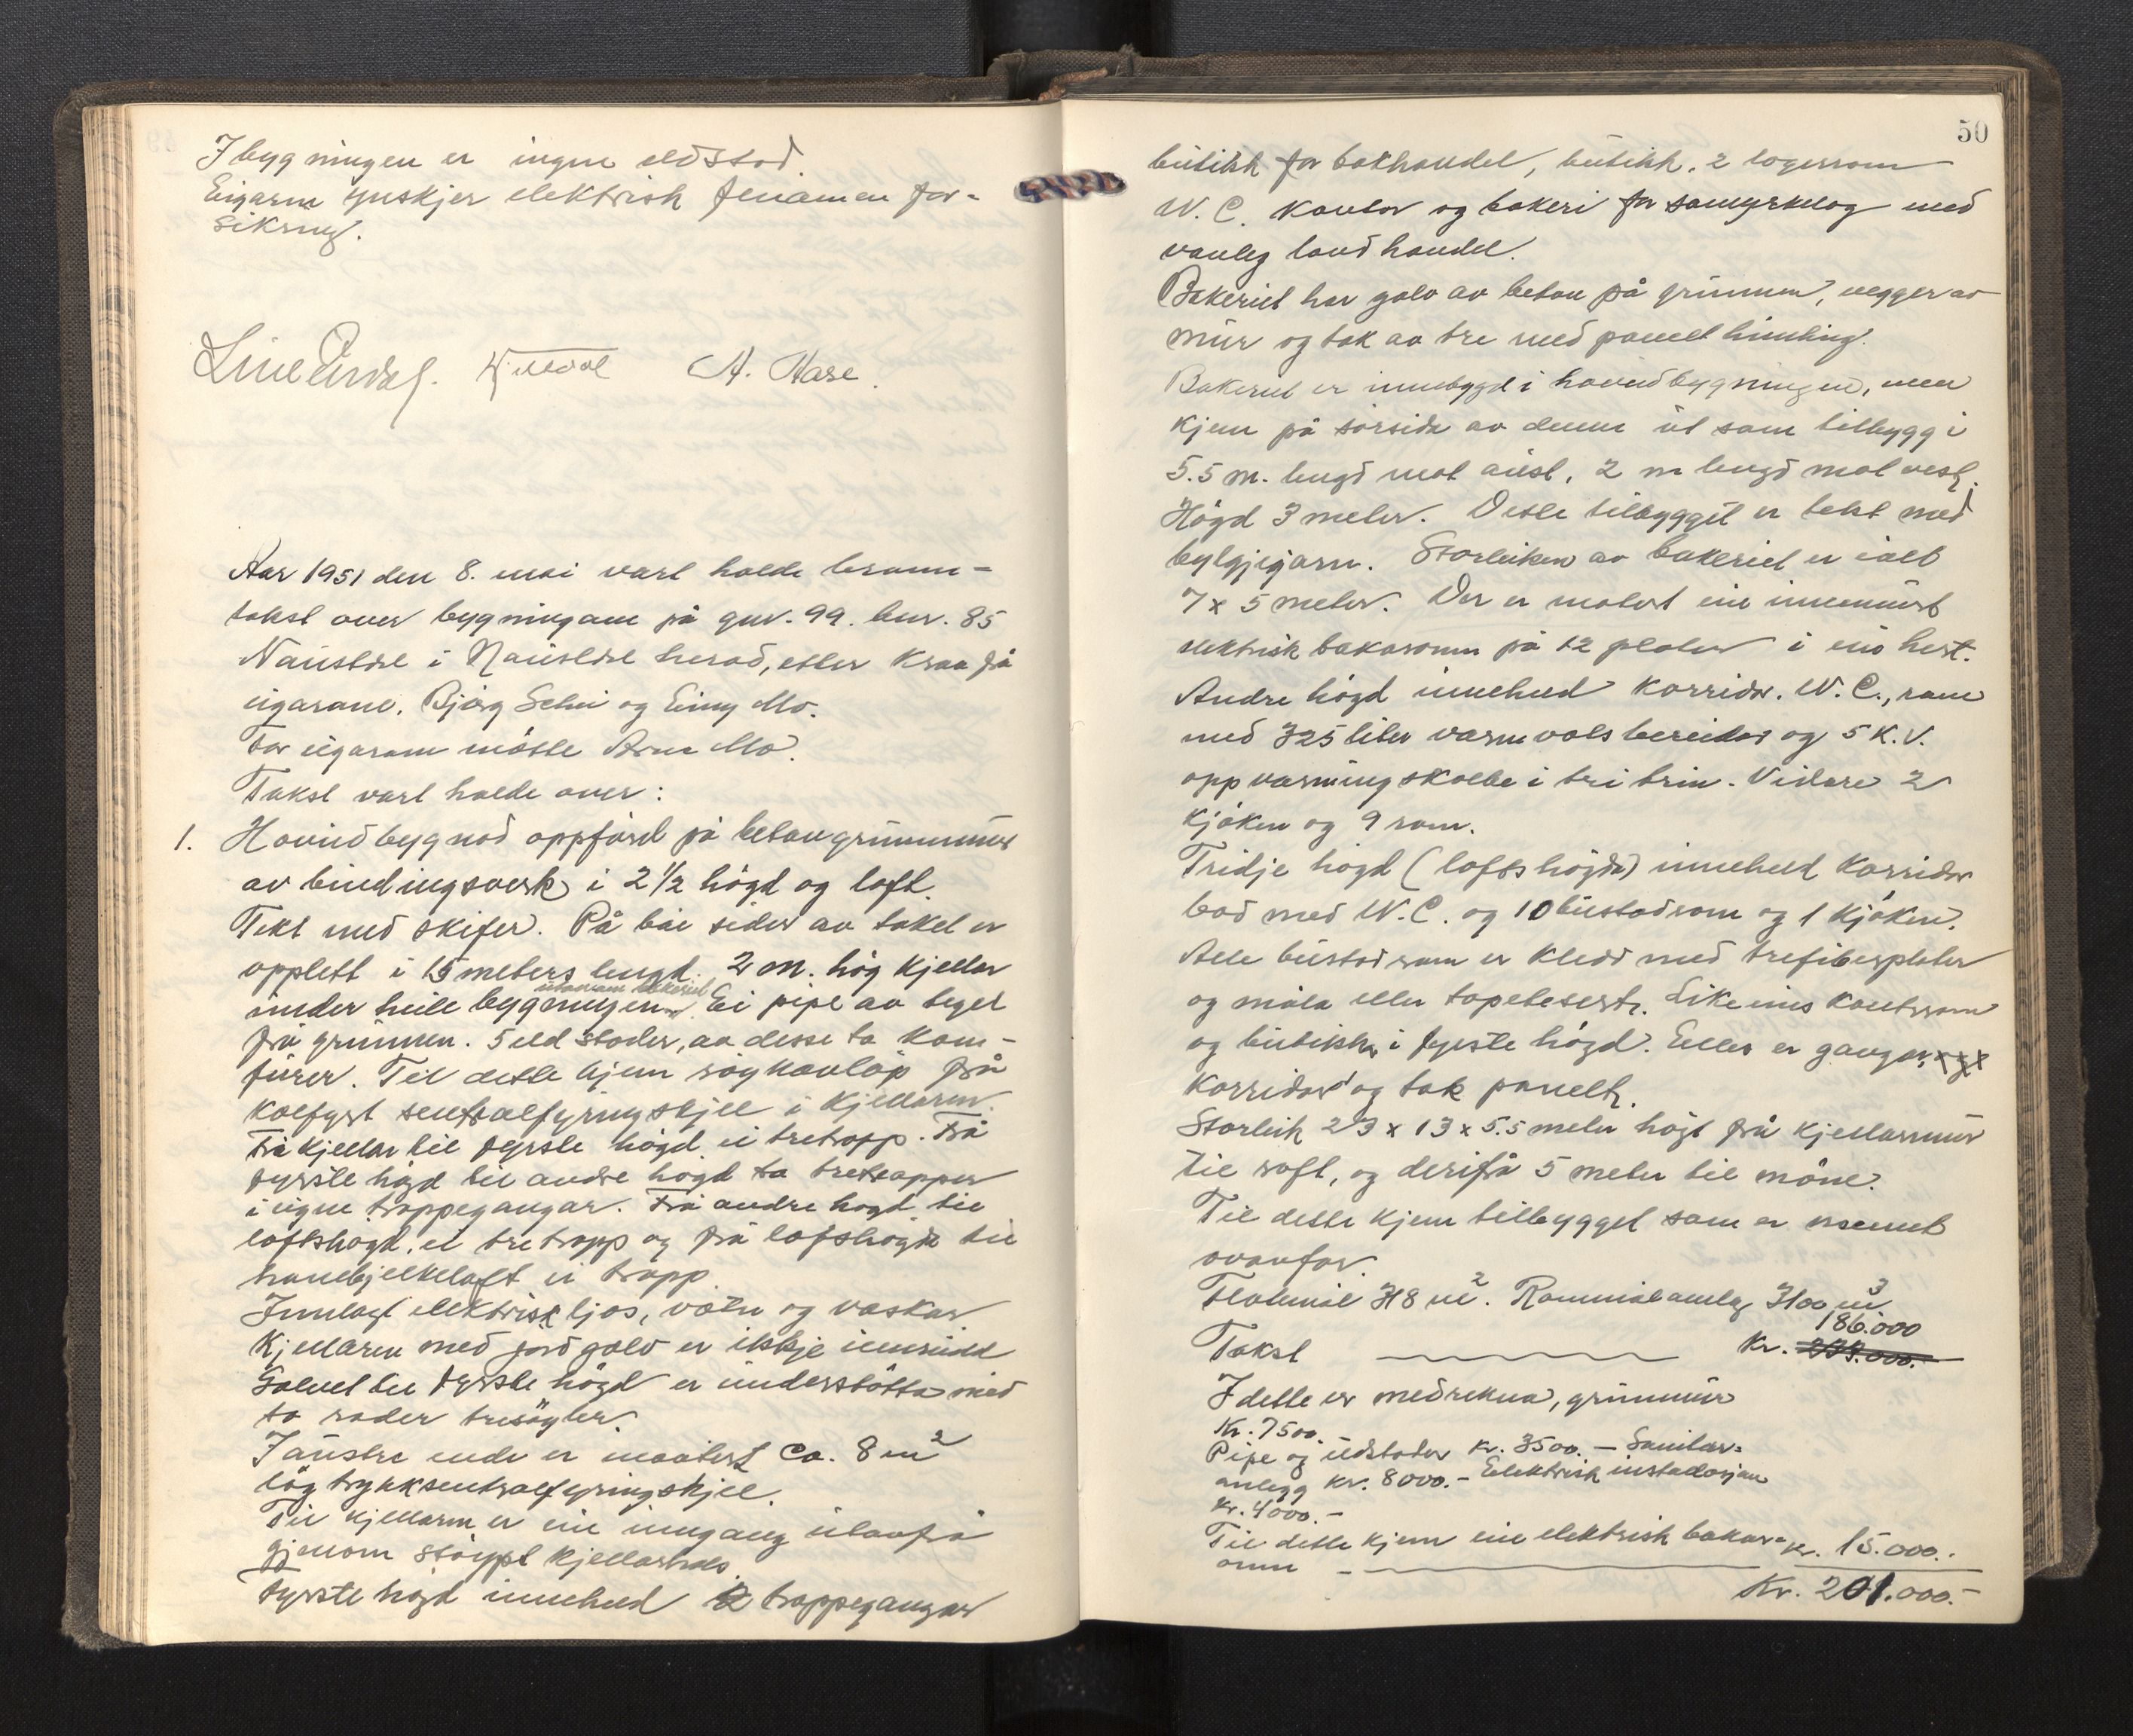 I bygningen er ingen eldstad.
Eigaren ynskjer elektrisk fenomen for-
sikring.
A. Aase.
Aar 1951 den 8. mai vart halde brann-
takst over bygningane på gnr. 99. bnr. 85
Naustdal i Naustdal herad, etter krav frå
eigarane, Bjørg Seim og Einy Mo.
For eigarane møtte Arne Mo.
Takst vart halde over:
1. Hovudbygnad oppførd på betongrunnmur
av bindingsverk i 2 1/2 høgd og loft.
Tekt med skifer. På båe sider av taket er
opplett i 15 meters lengd. 2 m. høg kjellar
utanom bakeriet
under heile bygningen. Ei pipe av tegel
frå grunnen. 5 eldstader, av desse to kom-
fyrer. Til dette kjem røykavløp frå
kolfyrt sentralfyringskjel i kjellaren.
Frå kjellar til fyrste høgd ei tretropp. Frå
fyrste høgd til andre høgd to tretropper
i eigne troppegangar. Frå andre høgd til
loftshøgd, ei tretropp og frå loftshøgda til
hanebjelkeloft ei tropp.
Innlagt elektrisk ljos, vatn og vaskar.
Kjellaren med jordgolv er ikkje innreidd
Golvet til fyrste høgd er understøtta med
to rader tresøyler.
I austre ende er montert ca. 8 m²
lågtrykksentralfyringskjel.
Til kjellaren er ein inngang utanfrå
gjenom støypt kjellarhals.
Fyrste høgd inneheld 2 troppegangar
50
butikk for bokhandel, butikk, 2 lagerrom
W. C. kontor og bakeri for samyrkelag med
vanleg landhandel.
Bakeriet har golv av betong på grunnen, vegger av
mur og tak av tre med panelt himling.
Bakeriet er innebygd i hovudbygningen, men
kjem på sørsida av denne ut som tilbygg i
5.5 m. lengd mot aust, 2 m lengd mot vest.
Høgd 3 meter. Dette tilbygget er tekt med
bylgjejarn. Storleiken av bakeriet er ialt
7 x 5 meter. Der er montert ein innemurt
elektrisk bakaromn på 12 plater i ein herd.
Andre høgd inneheld korridor. W. C., rom
med 325 liter varmvatsbereidar og 5 K.V.
oppvarmingskolbe i tri trin. Vidare 2
kjøken og 9 rom.
Tridje høgd (loftshøgda) inneheld korridor
bad med W. C. og 10 bustadrom og 1 kjøken.
Alle bustadrom er kledd med trefiberplater
og måla eller tapetsert. Likeeins kontorrom
og butikk i fyrste høgd. Elles er gangar,
korridor og tak panelt.
Storleik 23 x 13 x 5.5 meter høgt frå kjellarmur
til raft, og derifrå 5 meter til møne.
Til dette kjem tilbygget som er nemnt
ovanfor.
Flatemål 318 m². Rommål omlag 3100 m³
186.000
Takst Kr. 233.000.-
I dette er medrekna, grunnmur
Kr. 7500.
Pipe og eldstader Kr. 3500. – Sanitær-
anlegg kr. 8000. – Elektrisk installasjon
Kr. 4000. –
Til dette kjem ein elektrisk bakar- kr. 15.000.-
omn
Kr. 201.000.-